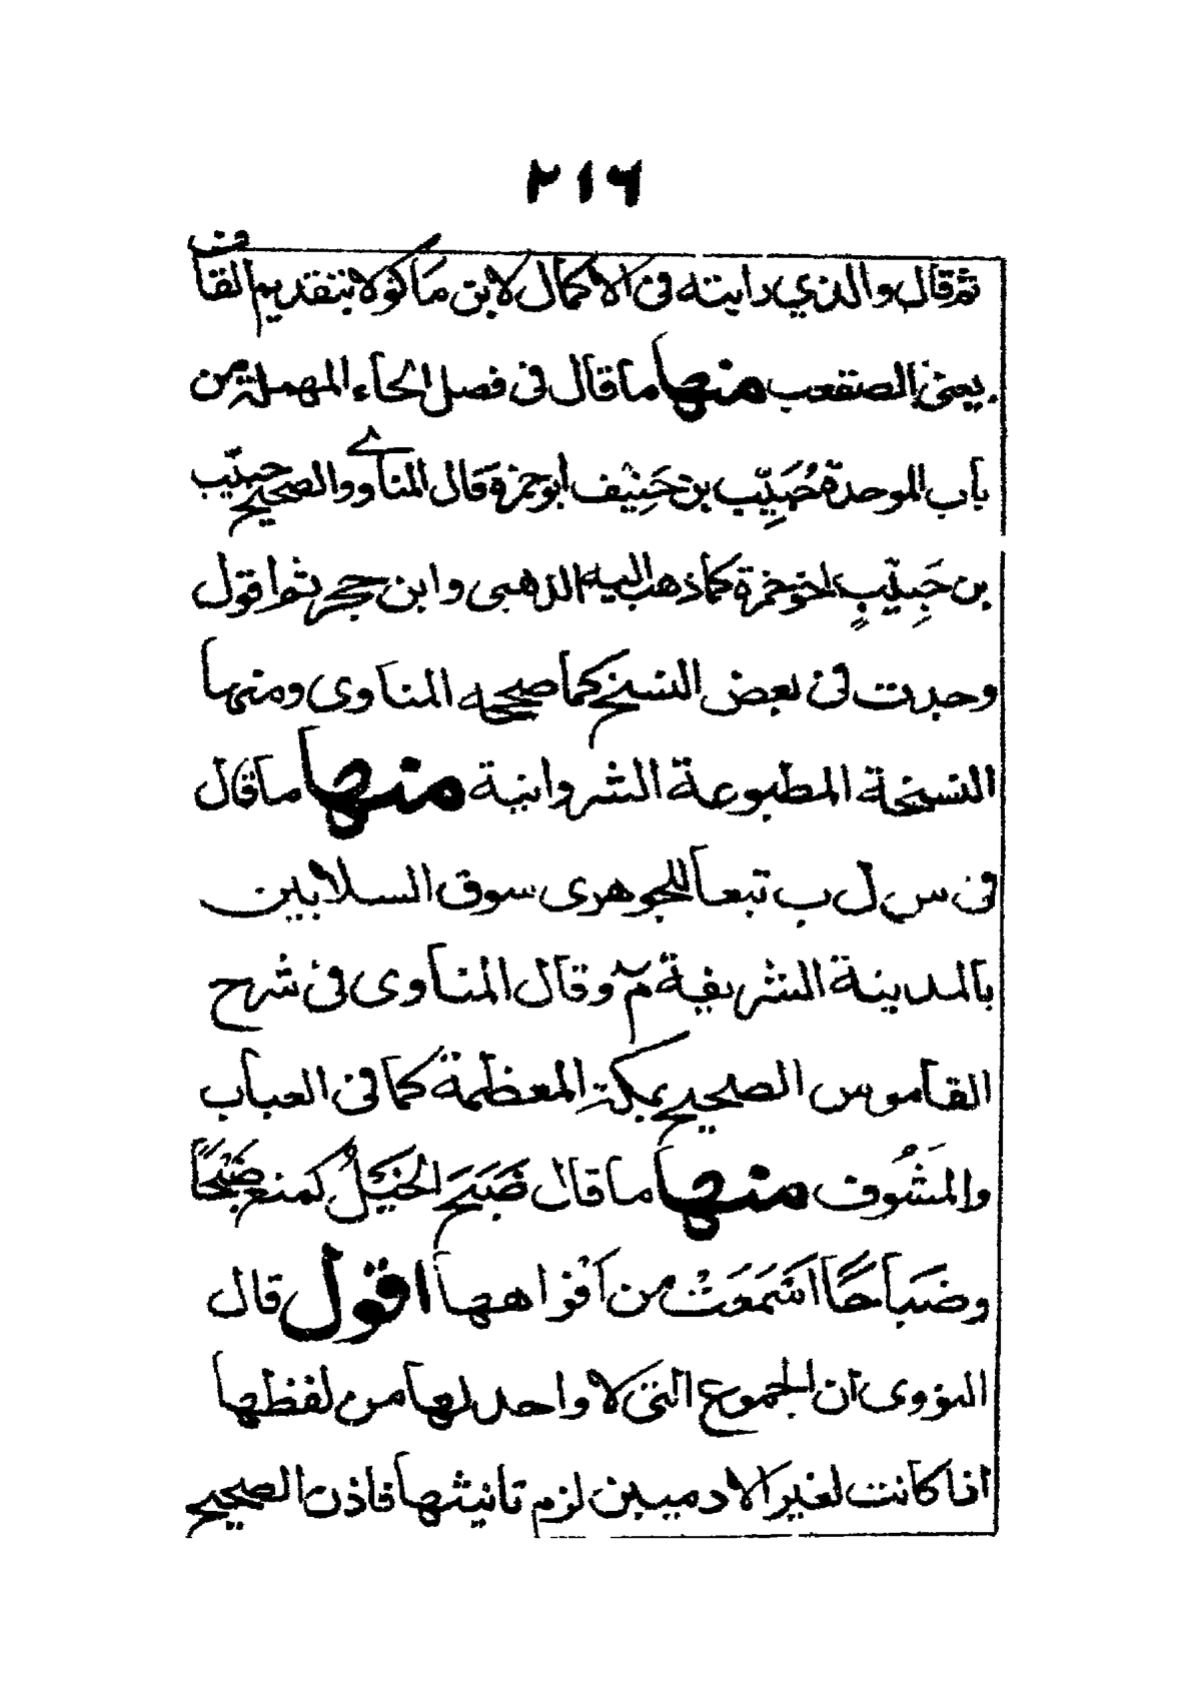 ٢١٦
ثم قال والذي رايته فى الاكمال لابن ماكولا بتقديم القاف
يعنى الصنقعب منها ما قال فى فصل الحاء المهملة من
باب الموحدة حُبَيِّب بن حَنِيف ابو حمزة قال المناوى والصحيح حبيّب
بن حَبِيّبٍ اخو حمزة كما ذهب اليه الذهبى وابن حجر ثم اقول
وجدت فى بعض النسخ كما صححه المناوى ومنها
النسخة المطبوعة الشروانية منها ما قال
فى س ل ب تبعا للجوهرى سوق السلابين
بالمدينة الشريفة م وقال المناوى فى شرح
القاموس الصحيح بمكة المعظمة كما فى العباب
والمَشُوف منها ما قال ضَبَحَ الخَيْلُ كمنع ضَبْحًا
وضَبَاحًا اسَّمَعَتْ من اَفْواهها اقول قال
النووى ان الجموع التى لا واحد لها من لفظها
اذا كانت لغير الادميين لزم تانيثها فاذن الصحيح